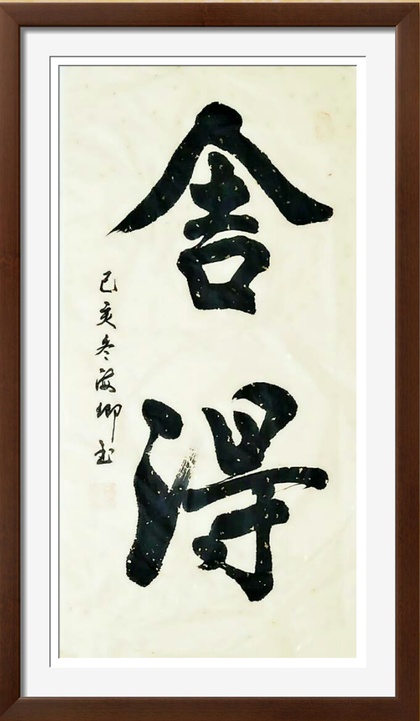 舍得
己亥冬海卿书